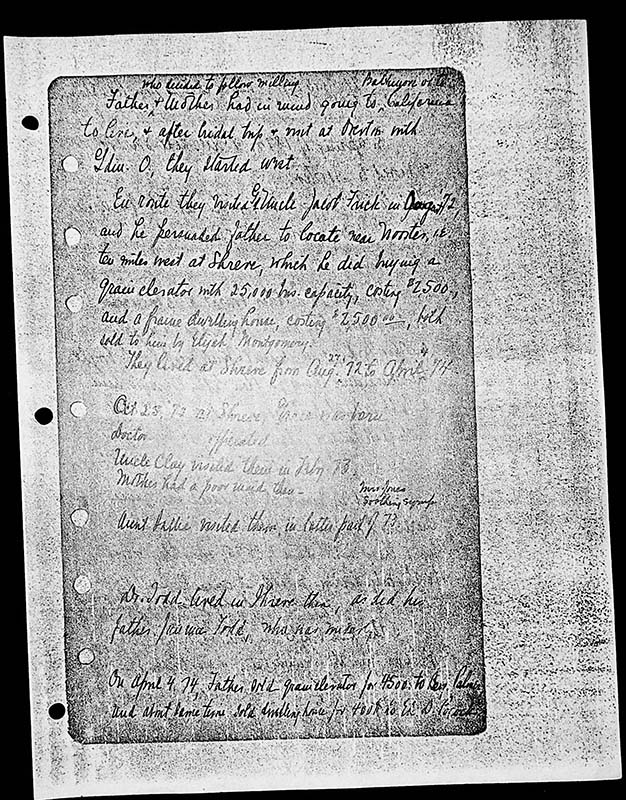 who decided to follow milling
Father & Mother had in mind going to California
to live, & after bridal trip & visit at with
O, they started west
En route they visited Uncle Jacob Frick in 72
and he persuaded father to locate near Wooster, i.e.
ten miles west at Shreve, which he did buying a
grain elevator with 25,000 bus. capacity, costing $2500,
and a frame dwelling house, costing $2500 00, both
sold to him by Elijah Montgomery.
They lived at Shreve from Aug. 72 to April 4 74
Oct 23, 73 at Shreve, was born
Doctor officiated
Uncle Clay visited them in 73.
Mother had a poor maid then -
Mrs Jones
Soothing syrup
Aunt visited them in latter part of 73
Dr. Todd lived in Shreve then, as did his
father Todd, who was
On April 4. 74, Father sold grain elevator for 4500. to
and about same time sold dwelling house for to D.